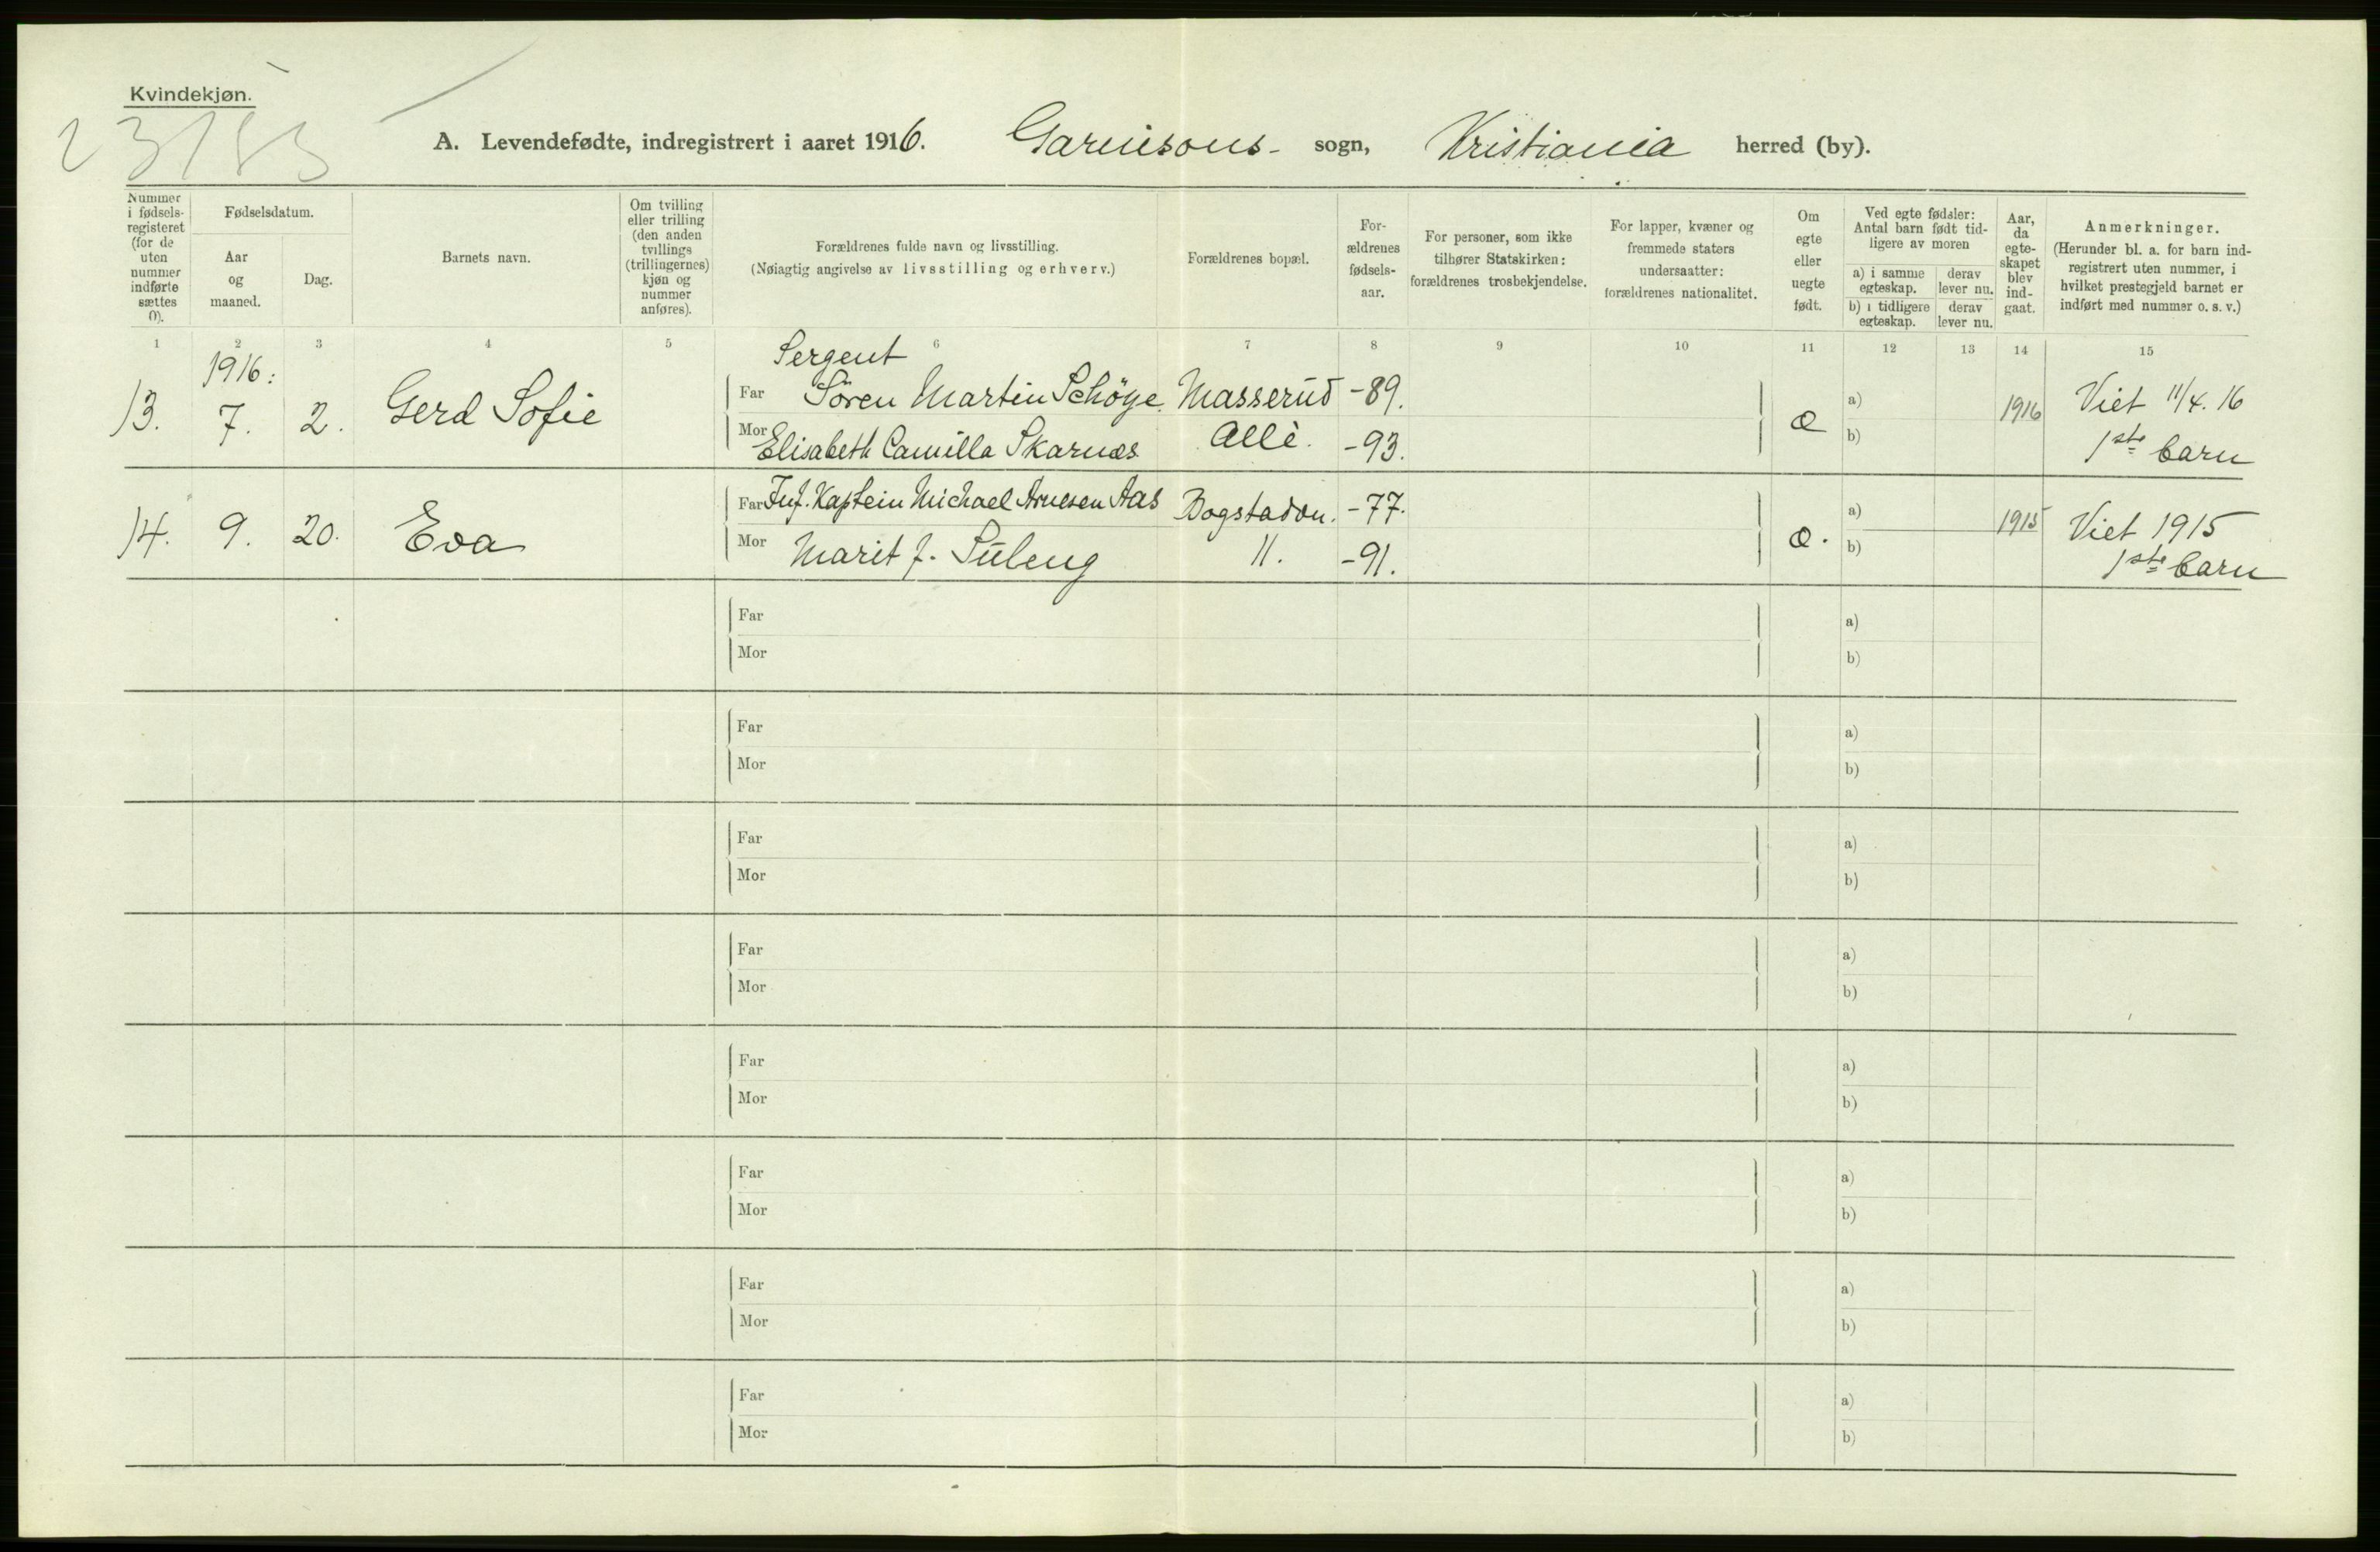 Kvindekjøn.
A. Levendefødte, indregistrert i aaret 1916. Garnisons- sogn, Kristiania herred (by).
Nummer i fødsels-registeret (for de uten nummer indførte sættes 0).
Fødselsdatum.
Aar og maaned.
Dag.
Barnets navn.
Om tvilling eller trilling (den anden tvillings (trillingernes) kjøn og nummer anføres).
Forældrenes fulde navn og livsstilling.
(Nøiagtig angivelse av livsstilling og erhverv.)
Forældrenes bopæl.
For-ældrenes fødsels-aar.
For personer, som ikke tilhører Statskirken: forældrenes trosbekjendelse.
For lapper, kvæner og fremmede staters undersaatter: forældrenes nationalitet.
Om egte eller uegte født.
Ved egte fødsler: Antal barn født tid-ligere av moren
a) i samme egteskap.
derav lever nu.
b) i tidligere egteskap.
derav lever nu.
Aar, da egte-skapet blev ind-gaat.
Anmerkninger.
(Herunder bl. a. for barn ind-registrert uten nummer, i hvilket prestegjeld barnet er indført med nummer o. s. v.)
1 2 3 4 5 6 7 8 9 10 11 12 13 14 15
1916: Sergent
13. 7. 2. Gerd Sofie Far Sören Martin Schöye. Masserud -89. a) 1916 Viet 11/4. 16
Mor Elisabeth Camilla Skarnæs Allè. -93. b) 1ste barn
14. 9. 20. Eva Far Inf. Kaptein Michael Arnesen Aas Bogstadvn. -77. a) 1915 Viet 1915
Mor Marit J. Süleng 11. -91. b) 1ste barn
Far a)
Mor b)
Far a)
Mor b)
Far a)
Mor b)
Far a)
Mor b)
Far a)
Mor b)
Far a)
Mor b)
Far a)
Mor b)
Far a)
Mor b)